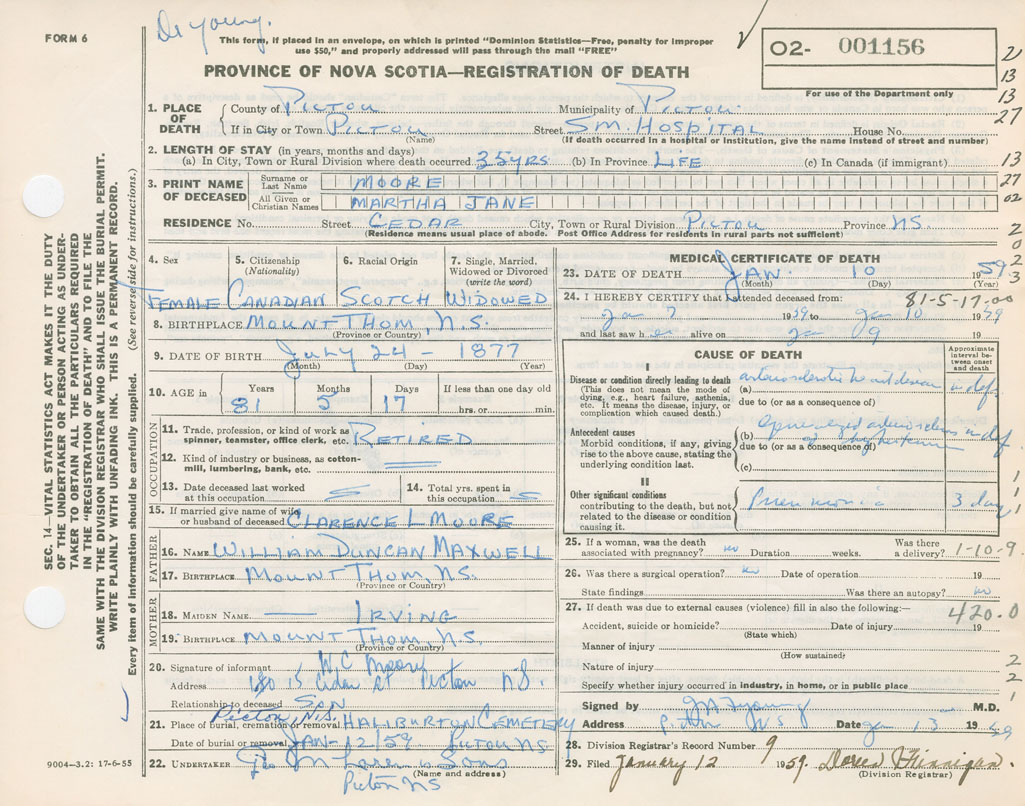 De Young.
FORM 6
This form, if placed in an envelope, on which is printed "Dominion Statistics—Free, penalty for improper
use $50," and properly addressed will pass through the mail "FREE"
PROVINCE OF NOVA SCOTIA—REGISTRATION OF DEATH
O2- 001156
For use of the Department only
21
13
13
27
13
27
02
2
0
2
3
SEC. 14—VITAL STATISTICS ACT MAKES IT THE DUTY
OF THE UNDERTAKER OR PERSON ACTING AS UNDER-
TAKER TO OBTAIN ALL THE PARTICULARS REQUIRED
IN THE "REGISTRATION OF DEATH" AND TO FILE THE
SAME WITH THE DIVISION REGISTRAR WHO SHALL ISSUE THE BURIAL PERMIT.
WRITE PLAINLY WITH UNFADING INK. THIS IS A PERMANENT RECORD.
Every item of information should be carefully supplied. (See reverse side for instructions.)
1. PLACE OF DEATH
County of PICTOU Municipality of PICTOU
If in City or Town PICTOU Street SM. HOSPITAL House No.
(Name) (If death occurred in a hospital or Institution, give the name instead of street and number)
2. LENGTH OF STAY (in years, months and days)
(a) In City, Town or Rural Division where death occurred 35 YRS (b) In Province LIFE (c) In Canada (if immigrant)
3. PRINT NAME OF DECEASED
Surname or Last Name MOORE
All Given or Christian Names MARTHA JANE
RESIDENCE No. Street CEDAR City, Town or Rural Division PICTOU Province NS
(Residence means usual place of abode. Post Office Address for residents in rural parts not sufficient)
4. Sex 5. Citizenship (Nationality) 6. Racial Origin 7. Single, Married, Widowed or Divorced (write the word)
FEMALE CANADIAN SCOTCH WIDOWED
8. BIRTHPLACE MOUNT THOM, N.S.
(Province or Country)
9. DATE OF BIRTH July 24 - 1877
(Month) (Day) (Year)
10. AGE in Years Months Days If less than one day old
81 5 17 hrs. or min.
OCCUPATION
11. Trade, profession, or kind of work as
spinner, teamster, office clerk, etc. RETIRED
12. Kind of industry or business, as cotton-
mill, lumbering, bank, etc.
13. Date deceased last worked at this occupation
14. Total yrs. spent in this occupation
15. If married give name of wife
or husband of deceased CLARENCE L MOORE
FATHER
16. NAME WILLIAM DUNCAN MAXWELL
17. BIRTHPLACE MOUNT THOM, N.S.
(Province or Country)
MOTHER
18. MAIDEN NAME — IRVING
19. BIRTHPLACE MOUNT THOM, N.S.
(Province or Country)
20. Signature of informant W.C. Moore
Address Cedar St Pictou N.S.
Relationship to deceased SON
Pictou, N.S.
21. Place of burial, cremation or removal HALIBURTON CEMETERY
Date of burial or removal JAN-12/59 PICTOU NS
22. UNDERTAKER Geo McLaren & Sons
(Name and address)
Pictou NS
9004—3.2: 17-6-55
MEDICAL CERTIFICATE OF DEATH
23. DATE OF DEATH JAN. 10 1959
(Month) (Day) (Year)
81-5-17-00
24. I HEREBY CERTIFY that I attended deceased from:
Jan 7 1959 to Jan 10 1959
and last saw her alive on Jan 9 19
CAUSE OF DEATH
Approximate interval between onset and death
I
Disease or condition directly leading to death
(This does not mean the mode of
dying, e.g., heart failure, asthenia,
etc. It means the disease, injury, or
complication which caused death.)
(a) arteriosclerotic heart disease indef.
due to (or as a consequence of)
Antecedent causes
Morbid conditions, if any, giving
rise to the above cause, stating the
underlying condition last.
(b) Generalized arteriosclerosis indef.
due to (or as a consequence of)
(c)
II
Other significant conditions
contributing to the death, but not
related to the disease or condition
causing it.
Pneumonia 3 days
1
1
1
25. If a woman, was the death
associated with pregnancy? no Duration weeks. Was there a delivery?
1-10-9
26. Was there a surgical operation? no Date of operation 19
State findings Was there an autopsy? no
27. If death was due to external causes (violence) fill in also the following:—
420.0
Accident, suicide or homicide? Date of injury 19
(State which)
Manner of injury
(How sustained)
Nature of injury
Specify whether injury occurred in industry, in home, or in public place
2
2
1
Signed by M.D.
Address Pictou NS Date Jan 13 1959
28. Division Registrar's Record Number 9
29. Filed January 12 1959. Finnegan.
(Division Registrar)